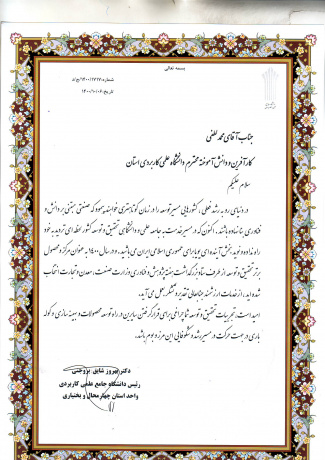 بسمه تعالی
شماره: ۱۴۰۰/۱۷۱۷۰/چ/د
تاریخ: ۱۴۰۰/۱۰/۰۶
جناب آقای محمد لطفی
کارآفرین و دانش آموخته محترم دانشگاه علمی کاربردی استان
سلام علیکم
در دنیای رو به رشد فعلی، کشورهایی مسیر توسعه را در زمان کوتاهتری خواهند پیمود که صنعتی مبتنی بر دانش و
فناوری بنا نهاده باشند. اکنون که در مسیر خدمت به جامعه علمی و دانشگاهی تحقیق و توسعه کشور لحظه ای تردید به خود
راه نداده و نوید بخش آینده ای پویا برای جمهوری اسلامی ایران می باشید، و در سال ۱۴۰۰ به عنوان مرکز و محصول
برتر تحقیق و توسعه از طرف ستاد بزرگداشت هفته پژوهش و فناوری وزارت صنعت، معدن و تجارت انتخاب
شده اید، از خدمات ارزشمند جنابعالی تقدیر و تشکر بعمل می آید.
امید است، تجربیات تحقیق و توسعه شما چراغی برای قرار گرفتن سایرین در راه توسعه محصولات و بهینه سازی و کوله
باری در جهت حرکت در مسیر رشد و شکوفایی این مرز و بوم باشد.
دکتر بهروز شایق بروجنی
رئیس دانشگاه جامع علمی کاربردی
واحد استان چهارمحال و بختیاری